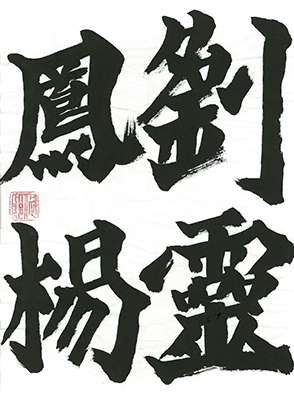 劉靈
鳳楊